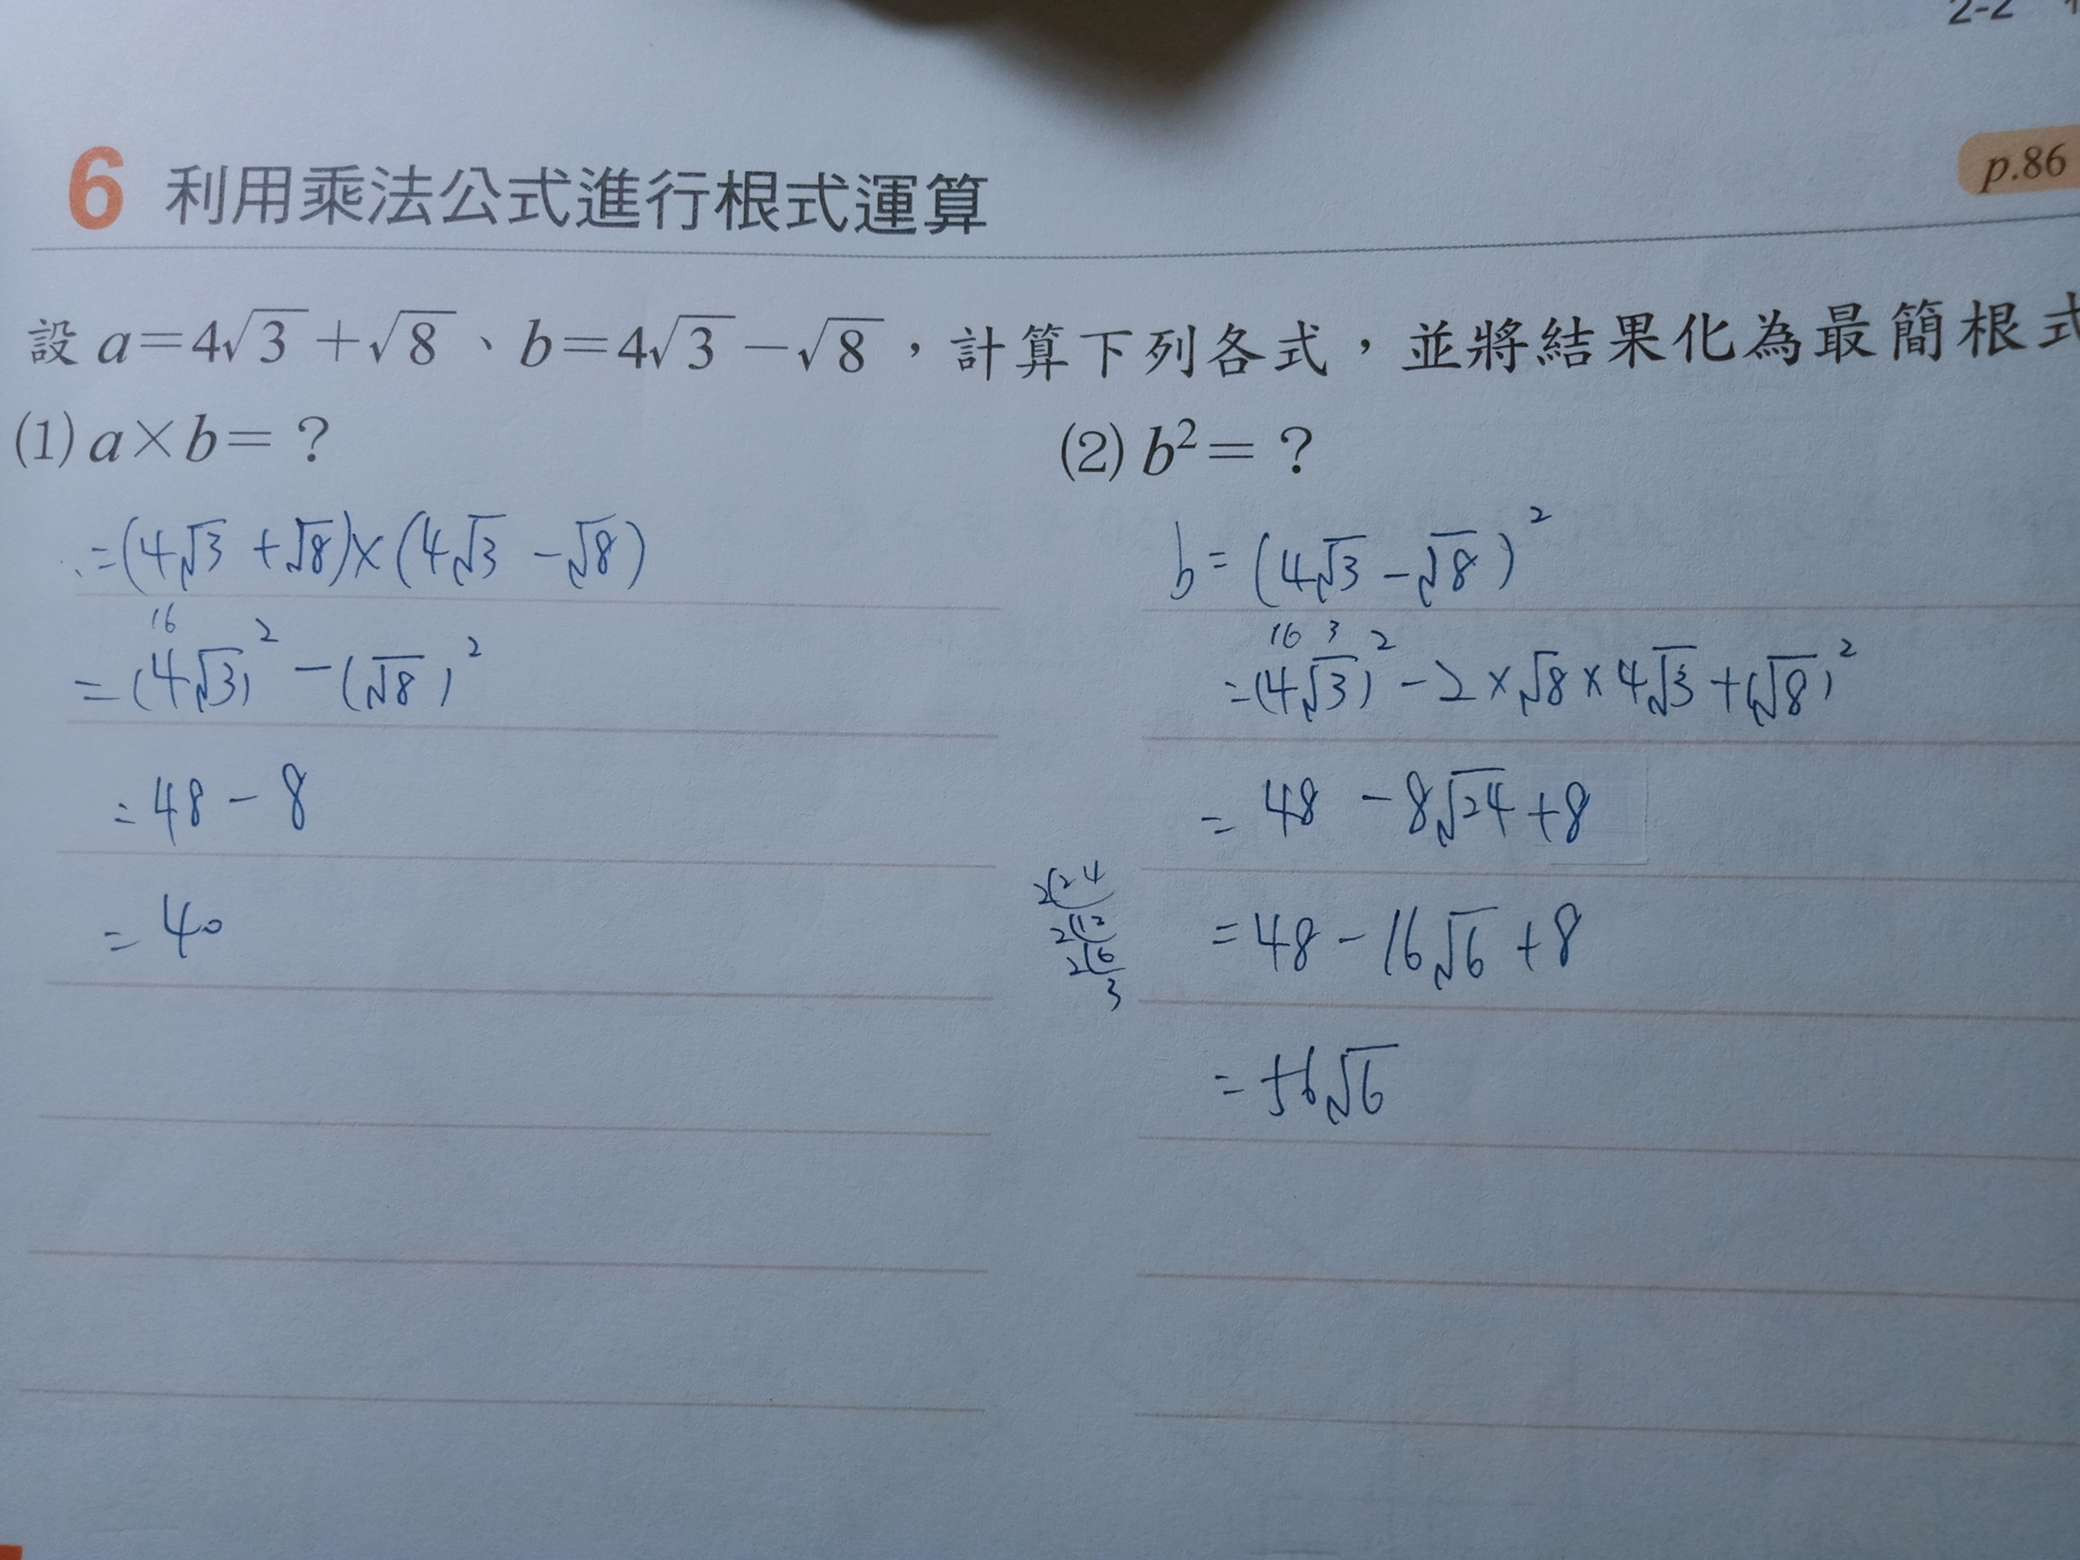 2-2
6 利用乘法公式進行根式運算
p.86
設 a=4√3+√8、b=4√3-√8，計算下列各式，並將結果化為最簡根式
(1) a×b=？
=(4√3+√8)×(4√3-√8)
16
=(4√3)²-(√8)²
=48-8
=40
(2) b²=？
b=(4√3-√8)²
16 3
=(4√3)²-2×√8×4√3+(√8)²
=48-8√24+8
2 24
2 12
2 6
3
=48-16√6+8
=56√6